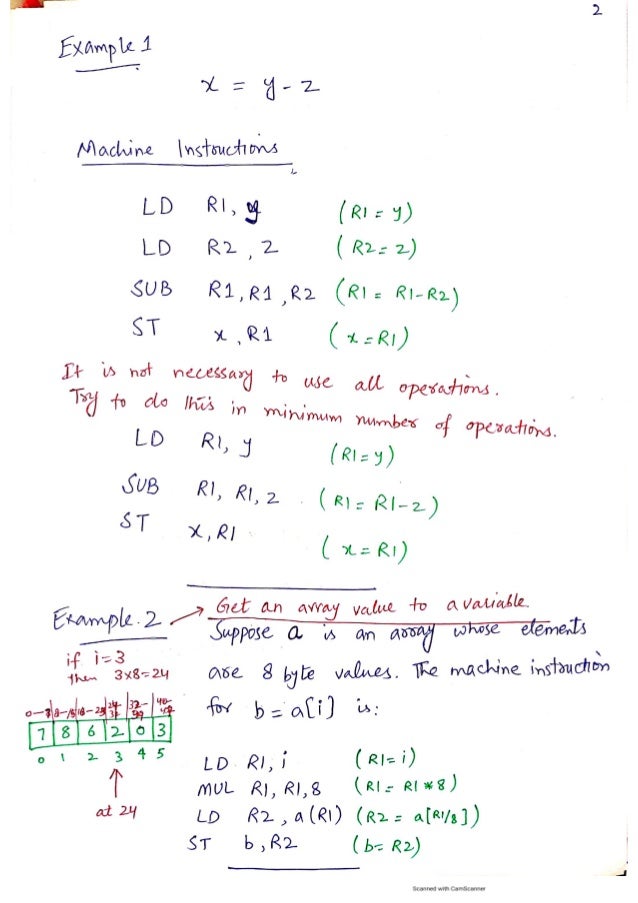 2
Example 1
x = y - z
Machine Instructions
LD R1, y (R1 = y)
LD R2, z (R2 = z)
SUB R1, R1, R2 (R1 = R1-R2)
ST x, R1 (x = R1)
It is not necessary to use all operations.
Try to do this in minimum number of operations.
LD R1, y (R1 = y)
SUB R1, R1, z (R1 = R1-z)
ST x, R1 (x = R1)
Example.2 → Get an array value to a variable.
Suppose a is an array whose elements
are 8 byte values. The machine instruction
for b = a[i] is:
if i=3
then 3x8=24
7 8 6 2 0 3
0 1 2 3 4 5
↑
at 24
LD R1, i (R1 = i)
MUL R1, R1, 8 (R1 = R1 * 8)
LD R2, a(R1) (R2 = a[R1/8])
ST b, R2 (b = R2)
Scanned with CamScanner